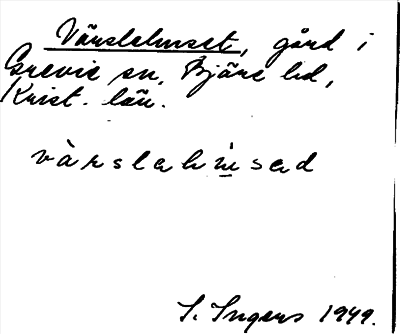 Värslehuset, gård i
Grevie sn, Bjäre hd,
Krist. län.
vàrslahu̲sad
S. Ingers 1949.